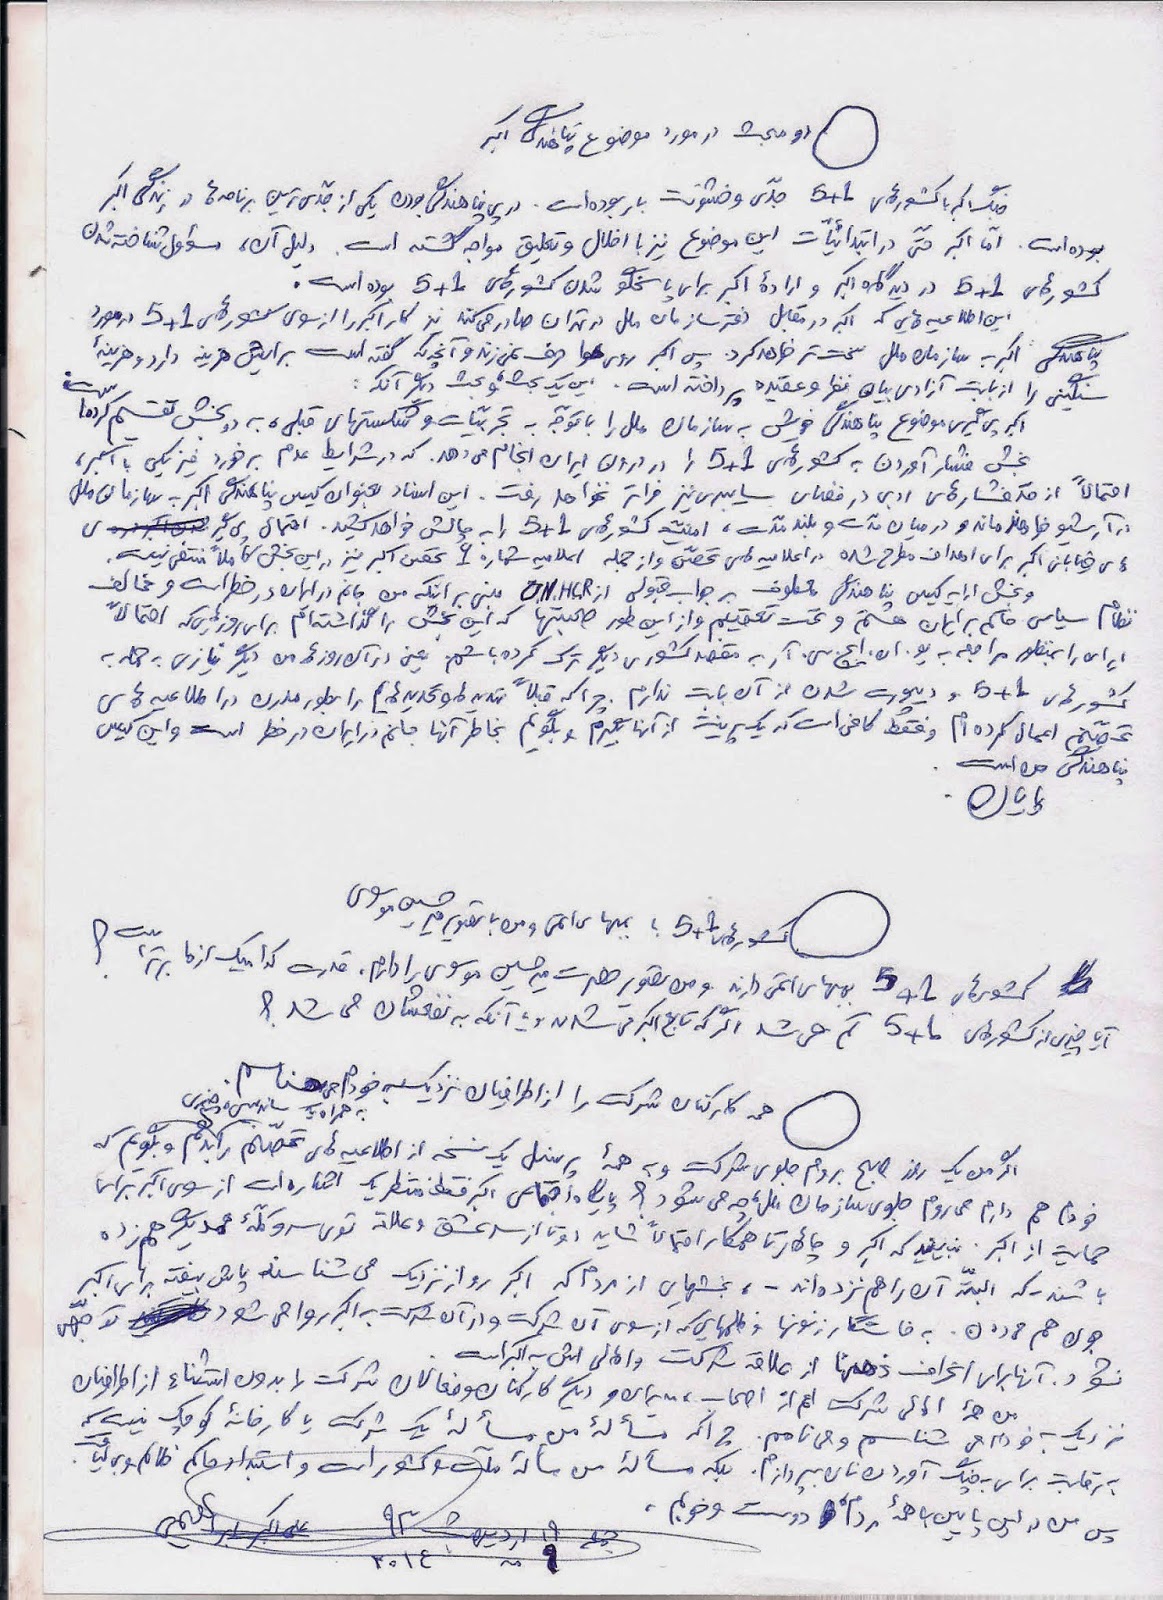 دو مبحث در مورد موضوع پناهندگی اکبر
جنگ اکبر با کشورهای 5+1 جدّی و خشونت بار بوده است. در پی پناهندگی بودن یکی از جدّی ترین برنامه ها در زندگی اکبر
بوده است. امّا اکبر حتّی در ابتدائیّات این موضوع نیز با اخلال و تعلیق مواجه گشته است. دلیل آن، مسؤول شناخته شدن
کشورهای 5+1 در دیدگاه اکبر و ارادهٔ اکبر برای پاسخگو شدن کشورهای 5+1 بوده است.
این اطلاعیه هایی که اکبر در مقابل دفتر سازمان ملل در تهران صادر می کند نیز کار اکبر را از سوی کشورهای 5+1 در مورد
پناهندگی اکبر به سازمان ملل سخت تر خواهد کرد. پس اکبر روی هوا حرف نمی زند و آنچه که گفته است برایش هزینه دارد و هزینهٔ
سنگینی را از بابت آزادی بیان نظر و عقیده پرداخته است. این یک بحث و بحث دیگر آنکه:
اکبر پی گیری موضوع پناهندگی خویش به سازمان ملل را با توجّه به تجربیّات و شکستهای قبلی، به دو بخش تقسیم کرده است
بخش فشار آوردن به کشورهای 5+1 را در درون ایران انجام می دهد. که در شرایط عدم برخورد فیزیکی با اکبر،
احتمالاً از حدّ فشارهای ادبی در فضای سایبری نیز فراتر نخواهد رفت. این اسناد بعنوان کیس پناهندگی اکبر به سازمان ملل
در آرشیو خواهد ماند و در میان مدّت و بلند مدّت، امنیّت کشورهای 5+1 را به چالش خواهد کشید. احتمال پی گیری
های خیابانی اکبر برای اهداف مطرح شده در اعلامیه های تحصّن و از جمله اعلامیه شماره 9 تحصّن اکبر نیز در این بخش کاملاً منتفی نیست.
و بخش ارایه کیس پناهندگی معطوف بر جواب قبولی از U.N.HCR مبنی بر اینکه من جانم در ایران در خطر است و مخالف
نظام سیاسی حاکم بر ایران هستم و تحت تعقیبم و از این طور صحبتها که این بخش را گذاشته ام برای روزهایی که احتمالاً
ایران را بمنظور مراجعه به یو. ان. اچ. سی. آر به مقصد کشوری دیگر ترک کرده باشم. یعنی در آن روزها من دیگر نیازی به حمله به
کشورهای 5+1 و دیپورت شدن از آن بابت ندارم. چرا که قبلاً تهدیدها و تحدیدهایم را بطور مدرن در اطلاعیه های
تحصّنم اعمال کرده ام و فقط کافی است که یک پرینت از آنها بگیرم و بگویم بخاطر آنها جانم در ایران در خطر است و این کیس
پناهندگی من است.
پایان.
کشورهای 5+1 با بمبهای اتمی و من با تصویر میر حسین موسوی
کشورهای 5+1 بمبهای اتمی دارند و من تصویر حضرت میر حسین موسوی را دارم. قدرت کدامیک از ما برتر است؟
آیا چیزی از کشورهای 5+1 کم می شد اگر که تابع اکبر می شدند و یا آنکه به نفعشان می شد؟
همه کارکنان شرکت را از اطرافیان نزدیک به خودم می شناسم.
به همراه یک ساندیس و چیزی
اگر من یک روز صبح بروم جلوی شرکت و به همهٔ پرسنل یک نسخه از اطلاعیه های تحصّنم را بدهم و بگویم که
خودم هم دارم می روم جلوی سازمان ملل، چه می شود؟ پایگاه اجتماعی اکبر فقط منتظر یک اشاره است از سوی اکبر برای
حمایت از اکبر. نبینید که اکبر و چهارتا همکار احتمالاً شاید دوتا از سر عشق و علاقه توی سر و کلّهٔ همدیگر هم زده
باشند - که البتّه آن را هم نزده اند -، بخشهایی از مردم که اکبر رو از نزدیک می شناسند پاش بیفته برای اکبر
جون هم میدن. به خاستگار زنها و ظلمهایی که از سوی آن شرکت و در آن شرکت به اکبر روا می شود توجّهی
نشود. آنها برای انحراف ذهنها از علاقه شرکت و اهالی اش به اکبر است.
من همهٔ اهالی شرکت اعم از اصحاب، مدیران و دیگر کارکنان و فعالان شرکت را بدون استثناء از اطرافیان
نزدیک به خودم می شناسم و می نامم. چرا که مسألهٔ من مسألهٔ یک شرکت یا کارخانهٔ کوچک نیست که
به رقابت برای به چنگ آوردن نان بپردازم. بلکه مسألهٔ من مسألهٔ ملّت و کشور است و استبداد حاکم ظالم و بی کفایت.
پس من در این پایین با همهٔ مردم دوست و خوبم.
جمعه ۱۹ اردیبهشت ۹۳ علی اکبر ابراهیمی
۹ مه ۲۰۱۴